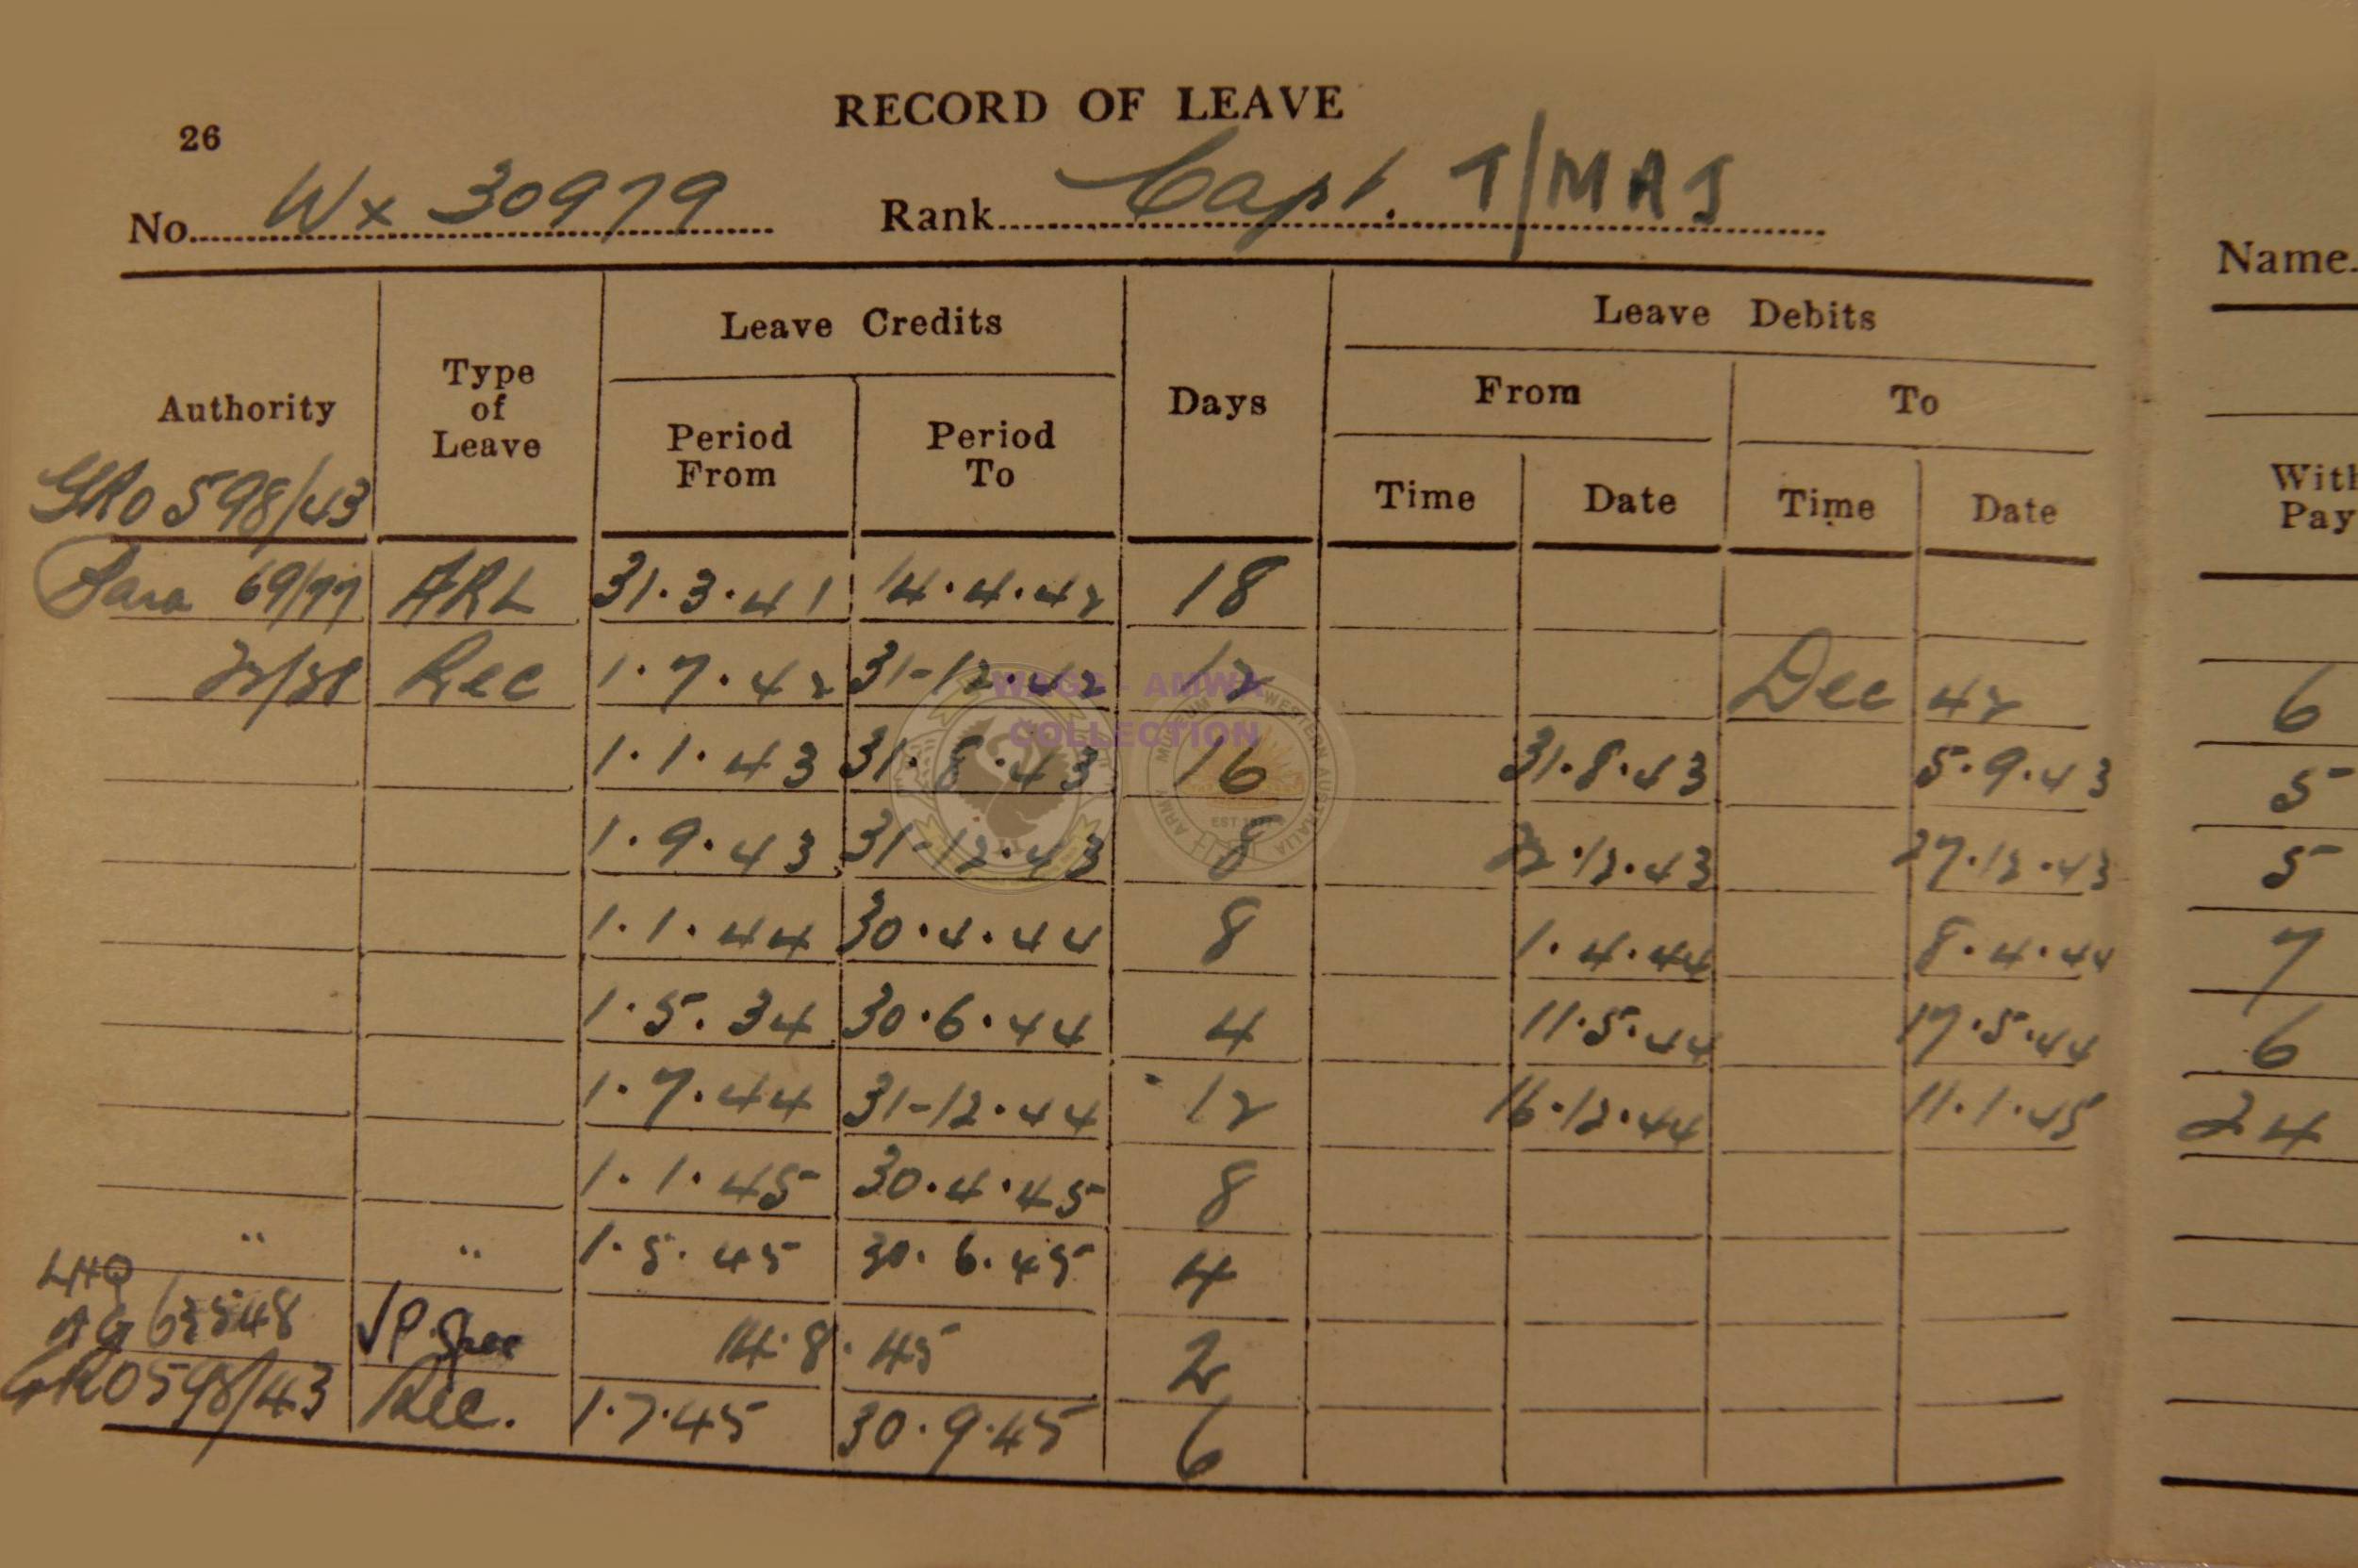 RECORD OF LEAVE
26
No. Wx 30979 Rank Capt. T/MAJ
Name
Authority Type of Leave Leave Credits Days Leave Debits
Period From Period To From To
Time Date Time Date With Pay
GRO 598/43
69/77 ARL 31.3.41 14.4.42 18
Rec 1.7.42 31-12.42 12 Dec 42 6
1.1.43 31.8.43 16 31.8.43 5.9.43 5
1.9.43 31-12.43 8 22.12.43 27.12.43 5
1.1.44 30.4.44 8 1.4.44 8.4.44 7
1.5.34 30.6.44 4 11.5.44 17.5.44 6
1.7.44 31-12.44 12 16.12.44 11.1.45 24
1.1.45 30.4.45 8
" " 1.5.45 30.6.45 4
LHQ
AG VP 14.8.45 2
GRO 598/43 Rec. 1.7.45 30.9.45 6
WAGS - AMWA
COLLECTION
ARMY MUSEUM WESTERN AUSTRALIA